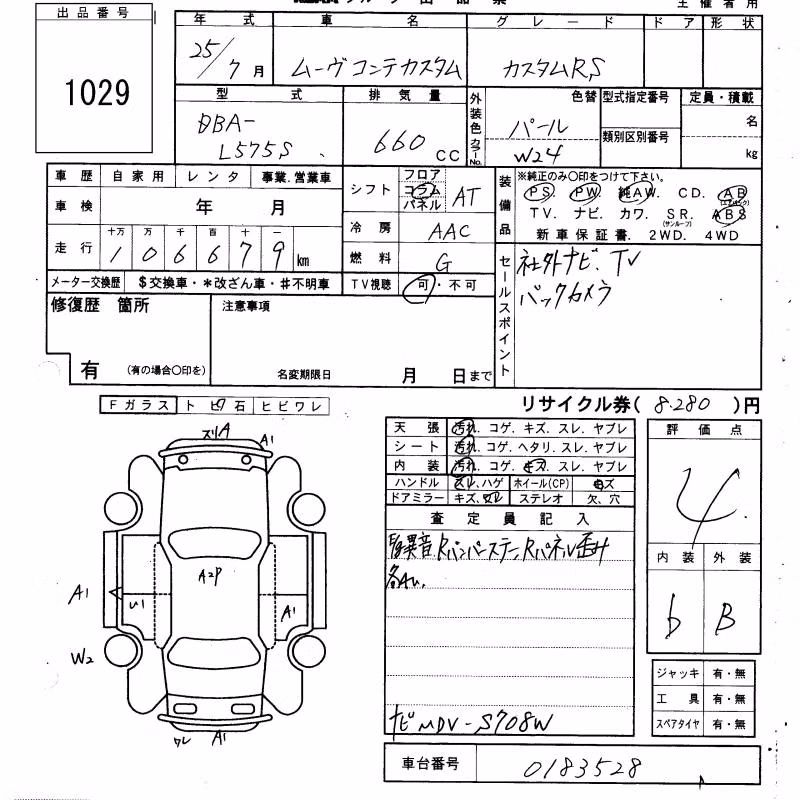 主催者用
出品番号
1029
年式 車名 グレード ドア 形状
25/7月 ムーヴコンテカスタム カスタムRS
型式 排気量 外装色 カラーNo. 色替 型式指定番号 定員・積載
DBA-L575S 660CC パール W24 類別区別番号 名 kg
車歴 自家用 レンタ 事業.営業車
車検 年 月
走行 十万 万 千 百 十 一
106679km
シフト フロア コラム パネル AT
冷房 AAC
燃料 G
装備品 ※純正のみ〇印をつけて下さい。
PS. PW. 純AW. CD. AB(エアバック)
TV. ナビ. カワ. SR.(サンルーフ) ABS
新車保証書. 2WD. 4WD
メーター交換歴 $交換車・*改ざん車・#不明車 TV視聴 可・不可
セールスポイント
社外ナビ、TV
バックカメラ
修復歴 箇所 注意事項
有 (有の場合〇印を) 名変期限日 月 日まで
リサイクル券( 8.280 )円
Fガラス トビ石 ヒビワレ
天張 汚れ. コゲ. キズ. スレ. ヤブレ
シート 汚れ. コゲ. ヘタリ. スレ. ヤブレ
内装 汚れ. コゲ. キズ. スレ. ヤブレ
ハンドル スレ.ハゲ ホイール(CP) キズ
ドアミラー キズ. ワレ ステレオ 欠、穴
評価点
4
内装 外装
b B
査定員記入
異音 Rバンパーステー、Rパネル歪み
各AU,
ナビMDV-S708W
スリA A1
A2P
A1 U1 A1
W2
ワレ A1
ジャッキ 有・無
工具 有・無
スペアタイヤ 有・無
車台番号 0183528